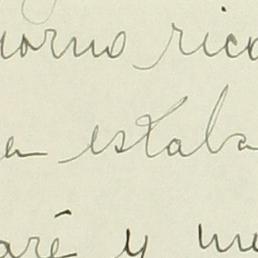 orno rico
en estaba
aré y me